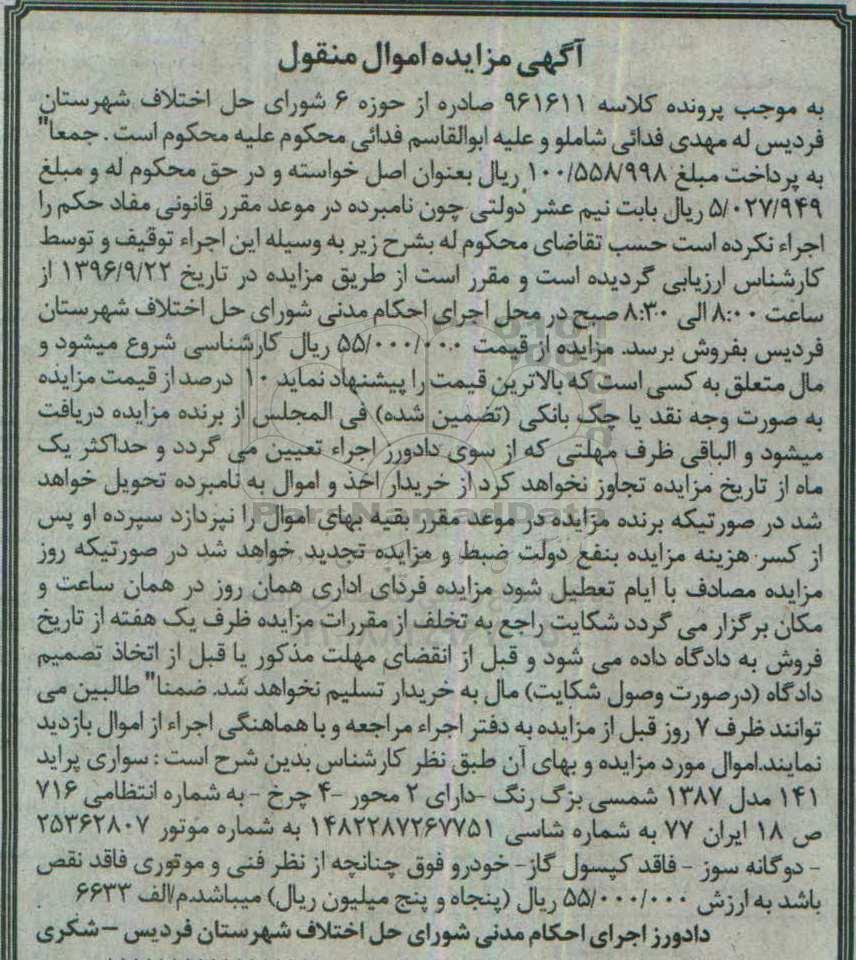 آگهی مزایده اموال منقول
به موجب پرونده کلاسه ۹۶۱۶۱۱ صادره از حوزه ۶ شورای حل اختلاف شهرستان
فردیس له مهدی فدائی شاملو و علیه ابوالقاسم فدائی محکوم علیه محکوم است . جمعا"
به پرداخت مبلغ ۱۰۰/۵۵۸/۹۹۸ ریال بعنوان اصل خواسته و در حق محکوم له و مبلغ
۵/۰۲۷/۹۴۹ ریال بابت نیم عشر دولتی چون نامبرده در موعد مقرر قانونی مفاد حکم را
اجراء نکرده است حسب تقاضای محکوم له بشرح زیر به وسیله این اجراء توقیف و توسط
کارشناس ارزیابی گردیده است و مقرر است از طریق مزایده در تاریخ ۱۳۹۶/۹/۲۲ از
ساعت ۸:۰۰ الی ۸:۳۰ صبح در محل اجرای احکام مدنی شورای حل اختلاف شهرستان
فردیس بفروش برسد. مزایده از قیمت ۵۵/۰۰۰/۰۰۰ ریال کارشناسی شروع میشود و
مال متعلق به کسی است که بالاترین قیمت را پیشنهاد نماید ۱۰ درصد از قیمت مزایده
به صورت وجه نقد یا چک بانکی (تضمین شده) فی المجلس از برنده مزایده دریافت
میشود و الباقی ظرف مهلتی که از سوی دادورز اجراء تعیین می گردد و حداکثر یک
ماه از تاریخ مزایده تجاوز نخواهد کرد از خریدار اخذ و اموال به نامبرده تحویل خواهد
شد در صورتیکه برنده مزایده در موعد مقرر بقیه بهای اموال را نپردازد سپرده او پس
از کسر هزینه مزایده بنفع دولت ضبط و مزایده تجدید خواهد شد در صورتیکه روز
مزایده مصادف با ایام تعطیل شود مزایده فردای اداری همان روز در همان ساعت و
مکان برگزار می گردد شکایت راجع به تخلف از مقررات مزایده ظرف یک هفته از تاریخ
فروش به دادگاه داده می شود و قبل از انقضای مهلت مذکور یا قبل از اتخاذ تصمیم
دادگاه (درصورت وصول شکایت) مال به خریدار تسلیم نخواهد شد. ضمنا" طالبین می
توانند ظرف ۷ روز قبل از مزایده به دفتر اجراء مراجعه و با هماهنگی اجراء از اموال بازدید
نمایند.اموال مورد مزایده و بهای آن طبق نظر کارشناس بدین شرح است : سواری پراید
۱۴۱ مدل ۱۳۸۷ شمسی بژگ رنگ -دارای ۲ محور -۴ چرخ - به شماره انتظامی ۷۱۶
ص ۱۸ ایران ۷۷ به شماره شاسی ۱۴۸۲۲۸۷۲۶۷۷۵۱ به شماره موتور ۲۵۳۶۲۸۰۷
- دوگانه سوز - فاقد کپسول گاز- خودرو فوق چنانچه از نظر فنی و موتوری فاقد نقص
باشد به ارزش ۵۵/۰۰۰/۰۰۰ ریال (پنجاه و پنج میلیون ریال) میباشد.م/الف ۶۶۳۳
دادورز اجرای احکام مدنی شورای حل اختلاف شهرستان فردیس – شکری
ParsNamadData